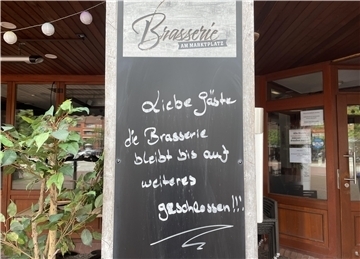 Brasserie
AM MARKTPLATZ
Liebe Gäste
die Brasserie
bleibt bis auf
weiteres
geschlossen!!!